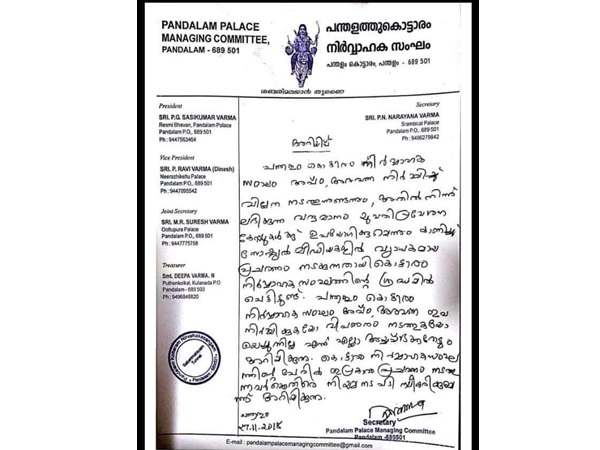 PANDALAM PALACE
MANAGING COMMITTEE,
PANDALAM - 689 501
പന്തളത്തുകൊട്ടാരം
നിർവ്വാഹക സംഘം
പന്തളം കൊട്ടാരം, പന്തളം - 689 501
ശബരിഗിരീശൻ തുണൈ
President
SRI. P.G. SASIKUMAR VARMA
Resmi Bhavan, Pandalam Palace
Pandalam P.O., 689 501
Ph : 9447563464
Vice President
SRI. P RAVI VARMA (Dinesh)
Neerazhikettu Palace
Pandalam P.O., 689501
Ph : 9447095542
Joint Secretary
SRI. M.R. SURESH VARMA
Oottupura Palace
Pandalam P.O.
Ph : 9447775758
Treasurer
Smt. DEEPA VARMA. N
Puthenkoikal, Kulanada P.O
Pandalam - 689 503
Ph : 9496848820
Secretary
SRI. P.N. NARAYANA VARMA
Srambical Palace
Pandalam P.O., 689501
Ph : 9496279842
അറിയിപ്പ്
പന്തളം കൊട്ടാരം നിർവ്വാഹക
സംഘം അപ്പം, അരവണ നിർമ്മിച്ച്
വില്പന നടത്തുന്നുണ്ടെന്നും, അതിൽ നിന്ന്
ലഭിക്കുന്ന വരുമാനം
ഉപയോഗിക്കുമെന്നും കാണിച്ച്
സോഷ്യൽ മീഡിയകളിൽ വ്യാപകമായ
പ്രചരണം നടക്കുന്നതായി കൊട്ടാരം
നിർവ്വാഹക സംഘത്തിന്റെ ശ്രദ്ധയിൽ
പെട്ടിട്ടുണ്ട്. പന്തളം കൊട്ടാരം
നിർവ്വാഹക സംഘം അപ്പം, അരവണ ഇവ
നിർമ്മിക്കുകയോ വിപണനം നടത്തുകയോ
ചെയ്യുന്നില്ല എന്ന് എല്ലാ അയ്യപ്പഭക്തരേയും
അറിയിക്കുന്നു. കൊട്ടാരം നിർവ്വാഹകസംഘ
ത്തിന്റെ പേരിൽ ഇപ്രകാരം പ്രചരണം നടത്തു
ന്നവർക്കെതിരെ നിയമ നടപടി സ്വീകരിക്കുമെ
ന്ന് അറിയിക്കുന്നു.
പന്തളം
27.11.2018
Secretary
Pandalam Palace Managing Committee
Pandalam -689501
E-mail : pandalampalacemanagingcommittee@gmail.com